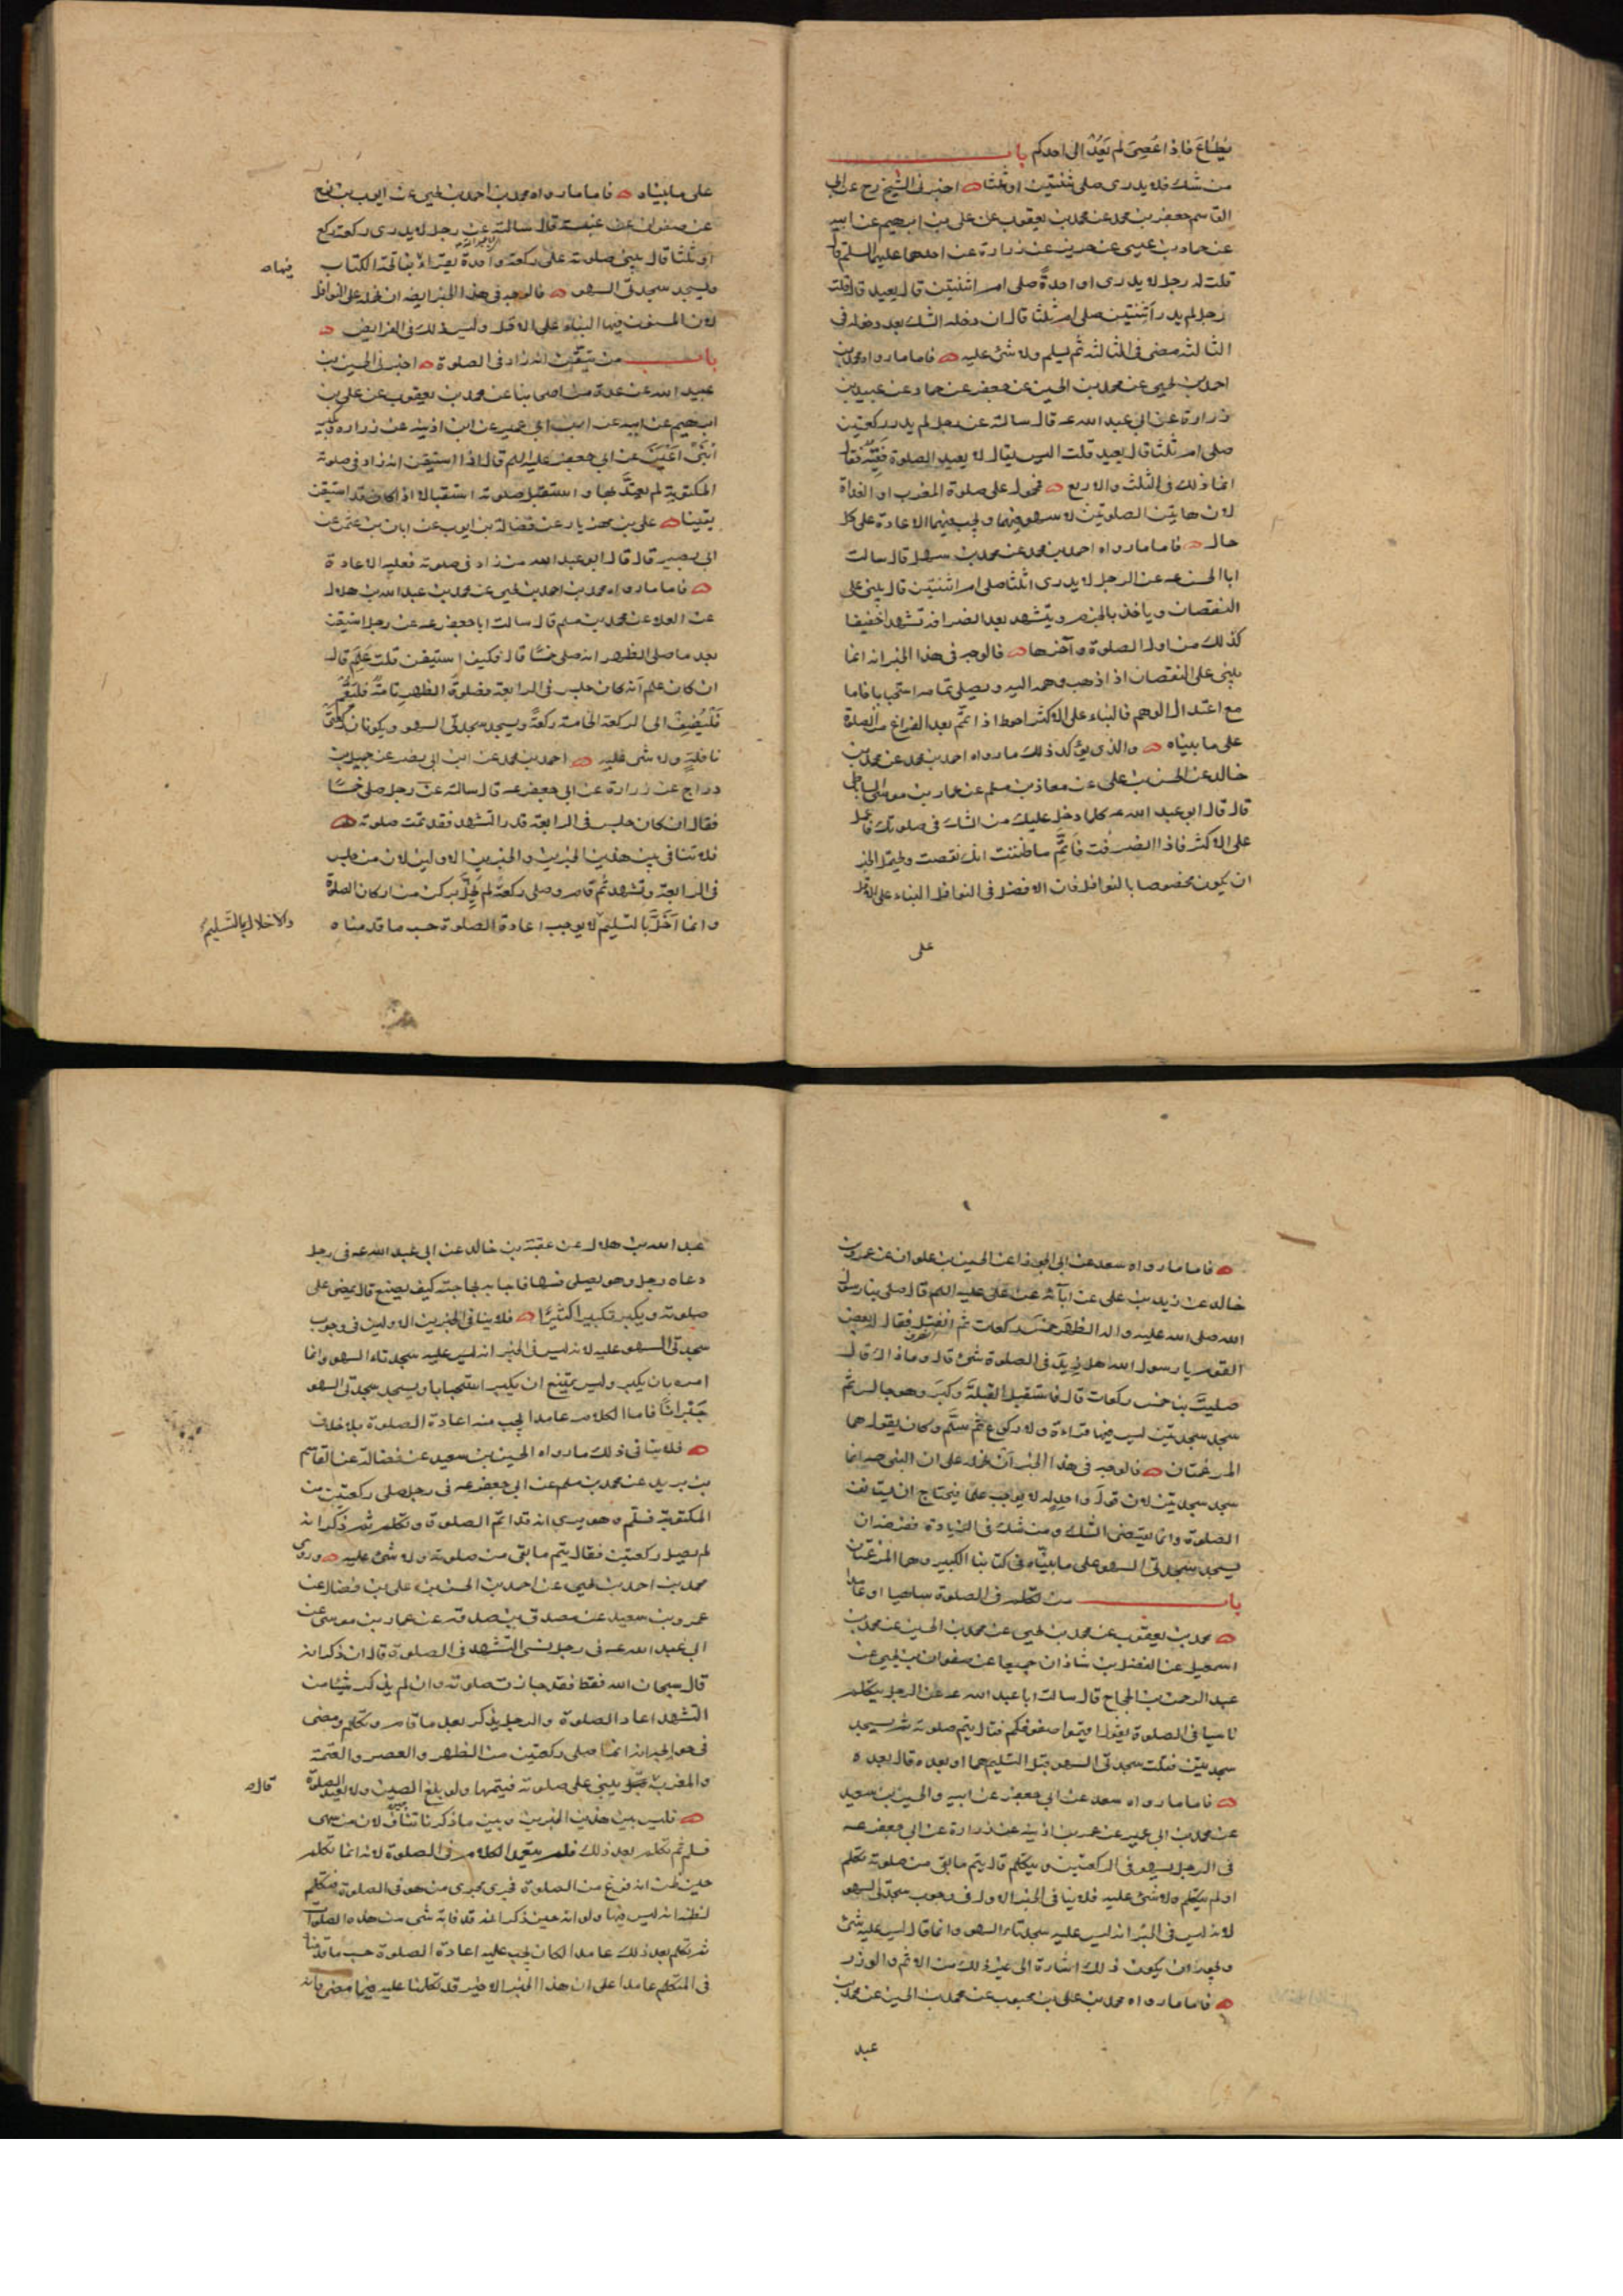 يُطاعَ فاذا عُصِىَ لم يَعُدْ الى احدكم باب
من شك فلا يدرى صلى ثنتين او ثلثا اخبرنى الشيخ رح عن ابى
القاسم جعفر بن محمد عن محمد بن يعقوب عن على بن ابرهيم عن ابيه
عن حماد بن عيسى عن حريز عن زرارة عن احدهما عليهما السلم قال
قلت له رجل لا يدرى او احدةً صلى ام اثنتين قال يعيد قال قلت
رجل لم يدر أثنتين صلى ام ثلثا قال ان دخله الشك بعد دخوله فى
الثالثه مضى فى الثالثه ثم يسلم ولا شئ عليه فاما ما رواه محمد بن
احمد بن يحيى عن محمد بن الحسين عن جعفر عن حماد عن عبيد بن
زرارة عن ابى عبد الله عه قال سالته عن رجل لم يدر ركعتين
صلى ام ثلثا قال يعيد قلت اليس يقال لا يعيد الصلوة فقيه فقال
انما ذلك فى الثلث والاربع فمحمول على صلوة المغرب او الغداة
لان هاتين الصلوتين لا سهو فيهما ويجب فيهما الاعادة على كل
حال فاما ما رواه احمد بن محمد عن محمد بن سهل قال سالت
ابا الحسن عه عن الرجل لا يدرى اثلثا صلى ام اثنتين قال يبنى على
النقصان وياخذ بالجزم ويتشهد بعد انصرافه تشهدا خفيفا
كذلك من اول الصلوة وآخرها فالوجه فى هذا الخبر انه انما
يبنى على النقصان اذا ذهب وهمه اليه ويصلى تمامه استحبابا فاما
مع اعتدال الوهم فالبناء على الاكثر احوط اذا تمّم بعد الفراغ من الصلوة
على ما بيناه والذى يؤكد ذلك ما رواه احمد بن محمد عن محمد بن
خالد عن الحسن بن على عن معاذ بن مسلم عن عمار بن موسى الساباطى
قال قال ابو عبد الله عه كلما دخل عليك من الشك فى صلوتك فاعمل
على الاكثر فاذا انصرفت فَاَتِمَّ ما ظننت انك نقصت ويحتمل الخبر
ان يكون مخصوصا بالنوافل فان الافضل فى النوافل البناء على الاقل
على
على ما بيناه فاما ما رواه محمد بن احمد بن يحيى عن ايوب بن نوح
عن صفوان عن عنبسة قال سالته عن رجل لا يدرى ركعة ركع
او ثلثا قال يبنى صلوته على ركعة واحدة يقرأ فيها بفاتحة الكتاب
فيها صح
وليسجد سجدتى السهو فالوجه فى هذا الخبر ايضه ان نحمله على النوافل
لان المسنون فيها البناء على الاقل وليس ذلك فى الفرايض
باب من تيقّن انه زاد فى الصلوة اخبرنى الحسين بن
عبيد الله عن عدة من اصحابنا عن محمد بن يعقوب عن على بن
ابرهيم عن ابيه عن ابن ابى عمير عن ابن اذينه عن زراره وبكير
اْبنَىْ اَعْيَنَ عن ابى جعفر عليه السلم قال اذا استيقن انه زاد فى صلوته
المكتوبة لم يعتدَّ بها واستقبل صلوته استقبالا اذا كان قد استيقن
يقينا على بن مهزيار عن فضالة بن ايوب عن ابان بن عثمن عن
ابى بصير قال قال ابو عبد الله من زاد فى صلوته فعليه الاعادة
فاما ما رواه محمد بن احمد بن يحيى عن محمد بن عبد الله بن هلال
عن العلا عن محمد بن مسلم قال سالت ابا جعفر عه عن رجل استيقن
بعد ما صلى الظهر انه صلى خمسًا قال وكيف استيقن قلت عَلِمَ قال
ان كان علم انّه كان جلس فى الرابعة فصلوةُ الظهر تامّةٌ فليقُم
فَلْيُضِفْ الى الركعة الخامسة ركعةً ويسجد سجدتى السهو ويكونان ركعتَىْ
نافلةٍ ولا شئ عليه احمد بن محمد عن ابن ابى نصر عن جميل بن
دراج عن زرارة عن ابى جعفر عه قال سالته عن رجل صلى خمسًا
فقال ان كان جلس فى الرابعة قدر التشهد فقد تمت صلوته
فلا تنافى بين هذين الخبرين والخبرين الاولين لان من جلس
فى الرابعة وتشهد ثم قام وصلى ركعة لم يُخِلَّ بركن من اركان الصلوة
وانما اَخَلَّ بالتسليم لا يوجب اعادة الصلوة حسب ما قدمناه
والاخلال بالتَّسليم
فاما ما رواه سعد عن ابى الجوزاء عن الحسين بن علوان عن عمرو بن
خالد عن زيد بن على عن ابآئه عن على عليه السلم قال صلى بنا رسول
الله صلى الله عليه واله الظهر خمس ركعات ثم انفتل فقال له بعض
القوم يا رسول الله هل زِيدَ فى الصلوة شئ قال وما ذاك قال
صليتَ بنا خمس ركعات قال فاستقبل القبلةَ وكبّر وهو جالس ثم
سجد سجدتين ليس فيهما قراءة ولا ركوع ثم سلّم وكان يقول هما
المرغمتان فالوجه فى هذا الخبر اَنْ نحمله على ان النبى صه انما
سجد سجدتين لان قولَ واحدٍ له لا يوجب علمًا فيحتاج ان يستانف
الصلوة وانما يقتضى الشك ومن شك فى الزيادة ففرضه ان
يسجد سجدتى السهو على ما بينّاه فى كتابنا الكبير وهما المرغمتان
باب من تكلم فى الصلوة ساهيا او عامدا
محمد بن يعقوب عن محمد بن يحيى عن محمد بن الحسين عن محمد بن
اسمعيل عن الفضل بن شاذان جميعا عن صفوان بن يحيى عن
عبد الرحمن بن الحجاج قال سالت ابا عبد الله عه عن الرجل يتكلم
ناسيا فى الصلوة يقول اقيموا صفوفكم فقال يتم صلوته ثم يسجد
سجدتين فقلت سجدتى السهو قبل التسليم هما او بعده قال بعده
فاما ما رواه سعد عن ابى جعفر عن ابيه والحسين بن سعيد
عن محمد بن ابى عمير عن عمر بن اذينه عن زرارة عن ابى جعفر عه
فى الرجل يسهو فى الركعتين ويتكلم قال يتم ما بقى من صلوته تكلم
او لم يتكلم ولا شئ عليه فلا ينافى الخبر الاول فى وجوب سجدتى السهو
لانه ليس فى الخبر انه ليس عليه سجدتاء السهو وانما قال ليس عليه شئ
ويجوز ان يكون ذلك اشارة الى غير ذلك من الاثم والوزر
فاما ما رواه محمد بن على بن محبوب عن محمد بن الحسين عن محمد بن
عبد
عبد الله بن هلال عن عقبة بن خالد عن ابى عبد الله عه فى رجل
دعاه رجل وهو يصلى فسها فاجابه بحاجته كيف يصنع قال يمضى على
صلوته ويكبر تكبيرا كثيرًا فلا ينافى الخبرين الاولين فى وجوب
سجدتى السهو عليه لانه ليس فى الخبر انه ليس عليه سجدتاء السهو وانما
امره بان يكبر وليس يمتنع ان يكبر استحبابا ويسجد سجدتى السهو
جُبْرانًا فاما الكلام عامدا يجب منه اعادة الصلوة بلا خلاف
فلا ينافى ذلك ما رواه الحسين بن سعيد عن فضالة عن القاسم
بن بريد عن محمد بن مسلم عن ابى جعفر عه فى رجل صلى ركعتين من
المكتوبة فسلّم وهو يرى انه قد اتم الصلوة وتكلم ثم ذكر انه
لم يصل ركعتين فقال يتم ما بقى من صلوته ولا شئ عليه وروى
محمد بن احمد بن يحيى عن احمد بن الحسن بن على بن فضال عن
عمرو بن سعيد عن مصدق بن صدقه عن عمار بن موسى عن
ابى عبد الله عه فى رجل نسى التشهد فى الصلوة قال ان ذكر انه
قال سبحان الله فقط فقد جازت صلوته وان لم يذكر شيئا من
التشهد اعاد الصلوة والرجل يذكر بعد ما قام وتكلم ومضى
فى حوايجه انه انما صلى ركعتين من الظهر والعصر والعتمة
والمغرب يبنى على صلوته فيتمها ولو بلغ الصين ولا يعيد الصلوة
قال صح
فليس بين هذين الخبرين وبين ما ذكرناه تنافٍ لان من سهى
فسلم ثم تكلم بعد ذلك فلم يتعمد الكلام فى الصلوة لانه انما تكلم
حين ظن انه فرغ من الصلوة فجرى مجرى من هو فى الصلوة فتكلم
لظنه انه ليس فيها ولو انه حين ذكر انه قد فاته شئ من هذه الصلوات
ثم تكلم بعد ذلك عامدا لكان يجب عليه اعادة الصلوة حسب ما قدمنا
فى المتكلم عامدا على ان هذا الخبر الاخير قد تكلمنا عليه فيما مضى فانه